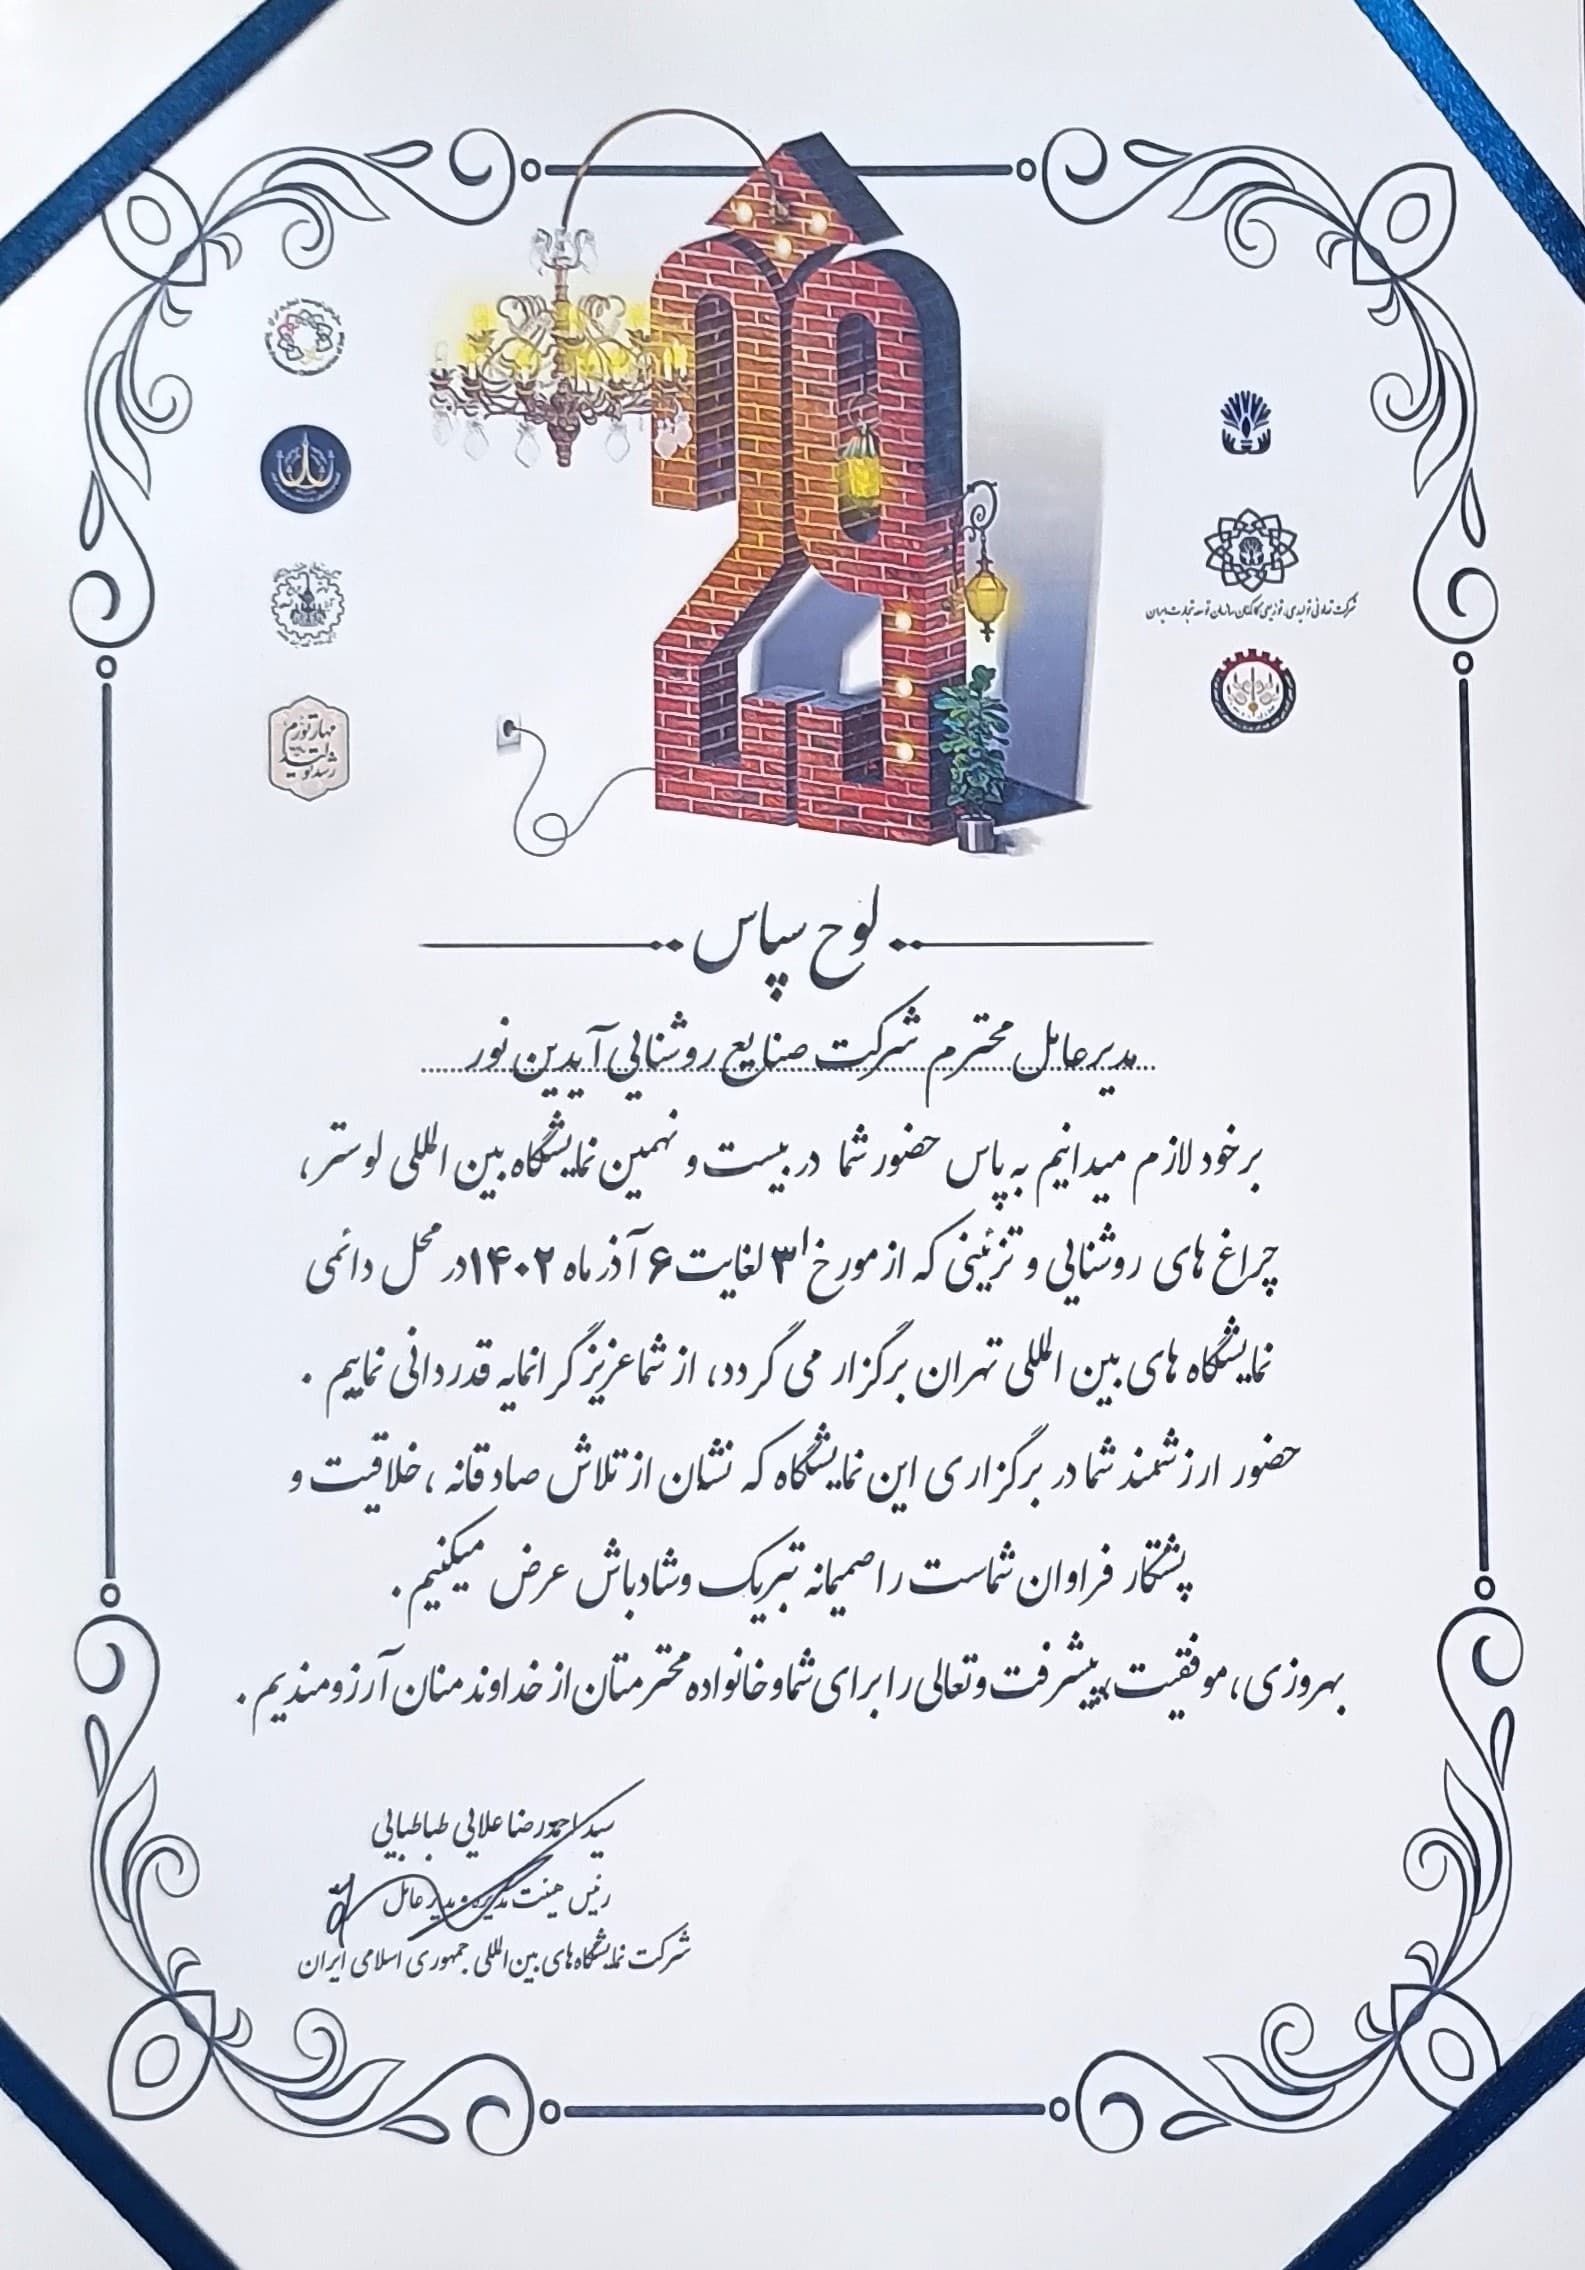 29
شرکت تعاونی تولیدی، توزیعی کارکنان سازمان توسعه تجارت ایران
مهار تورم
رشد تولید
لوح سپاس
مدیر عامل محترم شرکت صنایع روشنایی آیدین نور
بر خود لازم میدانیم به پاس حضور شما در بیست و نهمین نمایشگاه بین المللی لوستر،
چراغ های روشنایی و تزئینی که از مورخ ۳ لغایت ۶ آذر ماه ۱۴۰۲ در محل دائمی
نمایشگاه های بین المللی تهران برگزار می گردد، از شما عزیز گرانمایه قدردانی نماییم .
حضور ارزشمند شما در برگزاری این نمایشگاه که نشان از تلاش صادقانه ، خلاقیت و
پشتکار فراوان شماست را صمیمانه تبریک و شادباش عرض میکنیم .
بهروزی ، موفقیت ، پیشرفت و تعالی را برای شما و خانواده محترمتان از خداوند منان آرزومندیم .
سید احمدرضا علایی طباطبایی
رئیس هیئت مدیره و مدیر عامل
شرکت نمایشگاه های بین المللی جمهوری اسلامی ایران